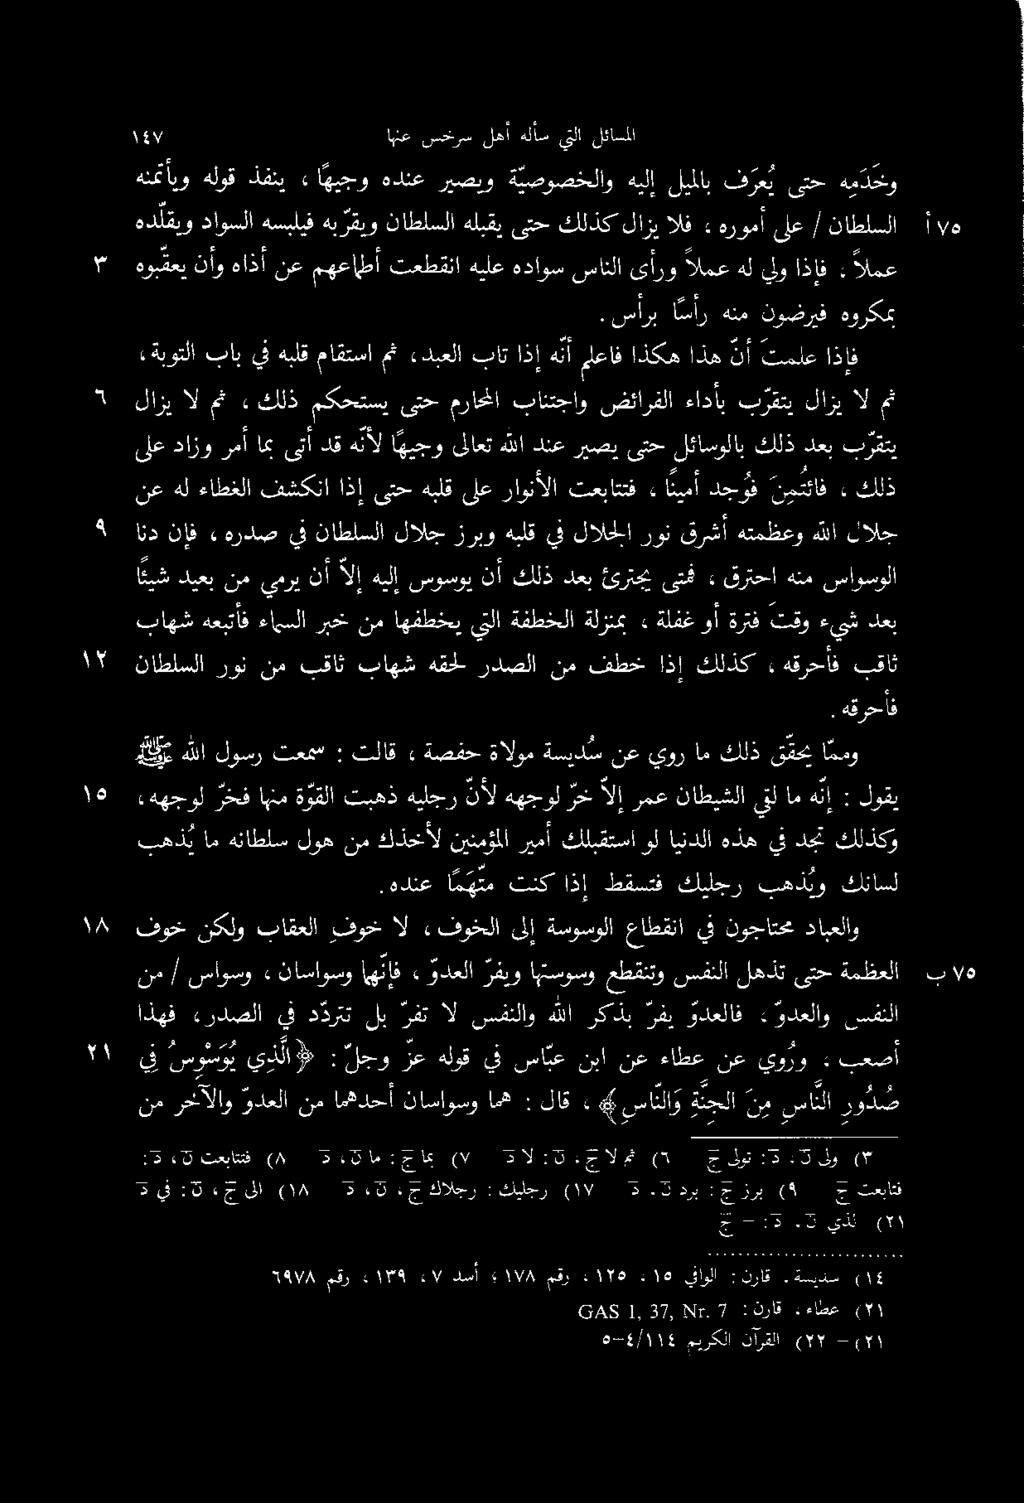 المسائل التي سأله أهل سرخس عنها ١٤٧
وخَدَمِه حتى يُعرَف بالميل إليه والخصوصيّة ويصير عنده وجيهاً، ينفذ قوله ويأتمنه
٧٥ أ السلطان / على أموره، فلا يزال كذلك حتى يقبله السلطان ويقرّبه فيلبسه السواد ويقلّده
عملاً، فإذا ولي له عملاً ورأى الناس سواده عليه انقطع أطماعهم عن أذاه وأن يعقّبوه ٣
بمكروه فيرضون منه رأساً برأس.
فإذا علمتَ أنّ هذا هكذا فاعلم أنّه إذا تاب العبد، ثم استقام قلبه في باب التوبة،
ثم لا يزال يتقرّب بأداء الفرائض واجتناب المحارم حتى يستحكم ذلك، ثم لا يزال ٦
يتقرّب بعد ذلك بالوسائل حتى يصير عند الله تعالى وجيهاً لأنّه قد أتى بما أمر وزاد على
ذلك، فائتُمِنَ فوُجد أميناً، فتتابعت الأنوار على قلبه حتى إذا انكشف الغطاء له عن
جلال الله وعظمته أشرق نور الجلال في قلبه وبرز جلال السلطان في صدره، فإن دنا ٩
الوسواس منه احترق، فمتى يجترئ بعد ذلك أن يوسوس إليه إلاّ أن يرمي من بعيد شيئاً
بعد شيء وقتَ فترة أو غفلة، بمنزلة الخطفة التي يخطفها من خبر السماء فأتبعه شهاب
ثاقب فأحرقه، كذلك إذا خطف من الصدر لحقه شهاب ثاقب من نور السلطان ١٢
فأحرقه.
وممّا يحقّق ذلك ما روي عن سُديسة مولاة حفصة، قالت: سمعت رسول الله ﷺ
يقول: إنّه ما لقي الشيطان عمر إلاّ خرّ لوجهه لأنّ رجليه ذهبت القوّة منها فخرّ لوجهه، ١٥
وكذلك تجد في هذه الدنيا لو استقبلك أمير المؤمنين لأخذك من هول سلطانه ما يُذهب
لسانك ويُذهب رجليك فتسقط إذا كنت متّهَماً عنده.
والعباد محتاجون في انقطاع الوسوسة إلى الخوف، لا خوفِ العقاب ولكن خوف ١٨
٧٥ ب العظمة حتى تذهل النفس وتنقطع وسوستها ويفرّ العدوّ، فإنّهما وسواسان، وسواس / من
النفس والعدوّ، فالعدوّ يفرّ بذكر الله والنفس لا تفرّ بل تتردّد في الصدر، فهذا
أصعب. ورُوي عن عطاء عن ابن عبّاس في قوله عزّ وجلّ: ﴿الَّذِي يُوَسْوِسُ فِي ٢١
صُدُورِ النَّاسِ مِنَ الجِنَّةِ وَالنَّاسِ﴾، قال: هما وسواسان أحدهما من العدوّ والآخر من
٣) ولى ن، د: تولى ج ٦) ثم لا ج، ن: لا د ٧) بما ج: ما ن، د ٨) فتتابعت ن، د:
فتابعت ج ٩) برز ج: برد ن، د ١٧) رجليك: رجلاك ج، ن، د ١٨) الى ج، ن: في د
٢١) لذي ن، د: – ج
١٤) سديسة، قارن: الوافي ١٥، ١٢٥، رقم ١٧٨؛ أسد ٧، ١٣٩، رقم ٦٩٧٨
٢١) عطاء، قارن: GAS I, 37, Nr. 7
٢١) – ٢٢) القرآن الكريم ١١٤/٤–٥